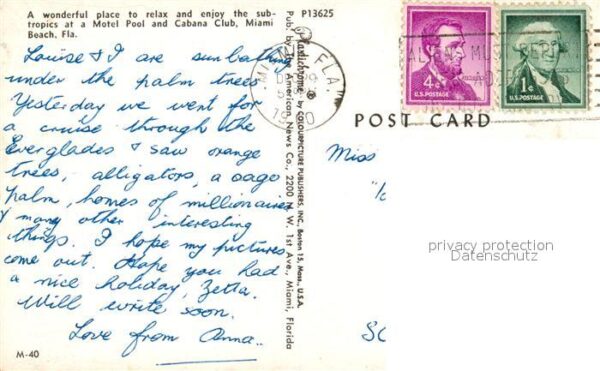 A wonderful place to relax and enjoy the sub-
tropics at a Motel Pool and Cabana Club, Miami
Beach, Fla.
P13625
Louise & I are sunbathing
under the palm trees
Yesterday we went for
a cruise through the
Everglades & saw orange
trees, alligators, a sago
palm, homes of millionaires
& many other interesting
things. I hope my pictures
come out. Hope you had
a nice holiday, Zetta.
Will write soon.
Love from Anna..
M-40
Plastichrome ® by COLOURPICTURE PUBLISHERS, INC., Boston 15, Mass., U.S.A.
Pub. by The American News Co., 2200 N. W. 1st Ave., Miami, Florida
FLA.
4¢
U.S. POSTAGE
1¢
U.S. POSTAGE
POST CARD
Miss
privacy protection
Datenschutz